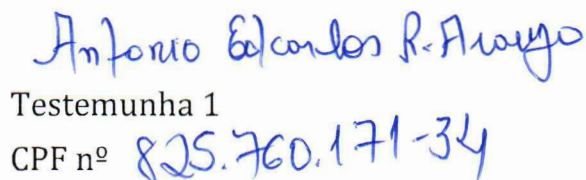 Antonio Edcarlos R. Araujo
Testemunha 1
CPF nº 825.760.171-34